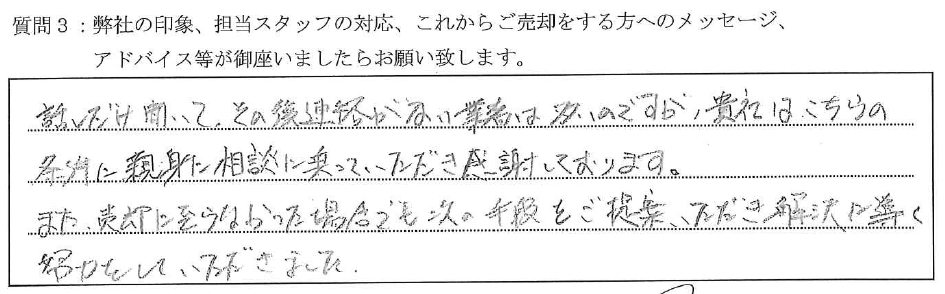 質問３：弊社の印象、担当スタッフの対応、これからご売却をする方へのメッセージ、
アドバイス等が御座いましたらお願い致します。
話しだけ聞いて、その後連絡がない業者は多いのですが、貴社はこちらの
条件に親身に相談に乗っていただき感謝しております。
また、売却に至らなかった場合でも次の手段をご提案いただき解決に導く
努力をしていただきました。